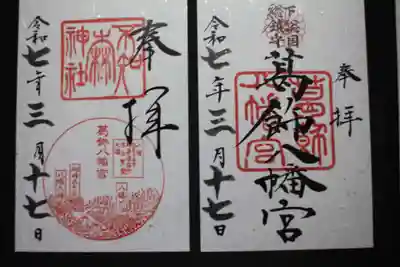 奉拝
不知森神社
葛飾八幡宮
令和七年三月十七日
奉拝
下総国
総鎮守
葛飾八幡宮
葛飾八幡宮
令和七年三月十七日